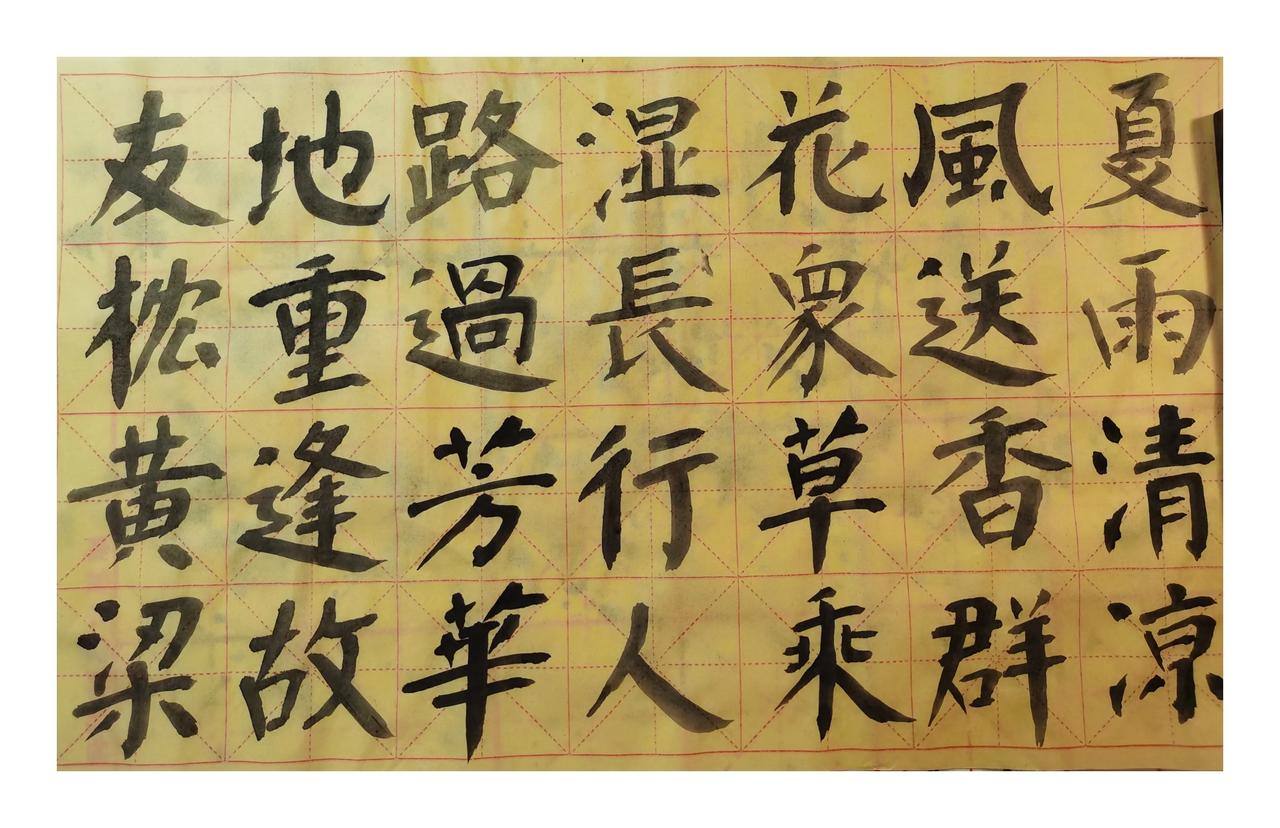 夏雨清涼
風送香群
花衆草乘
湿長行人
路過芳華
地重逢故
友枕黄梁